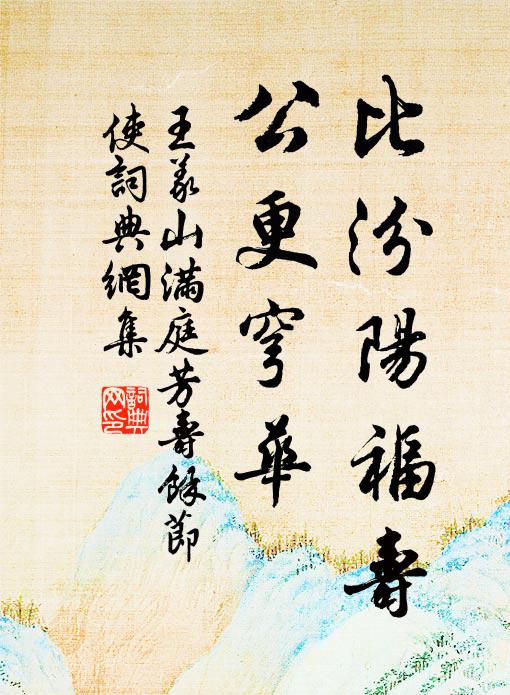 比汾陽福壽
公更穹華
王義山滿庭芳壽餘節
使詞典網集
詞典
网印